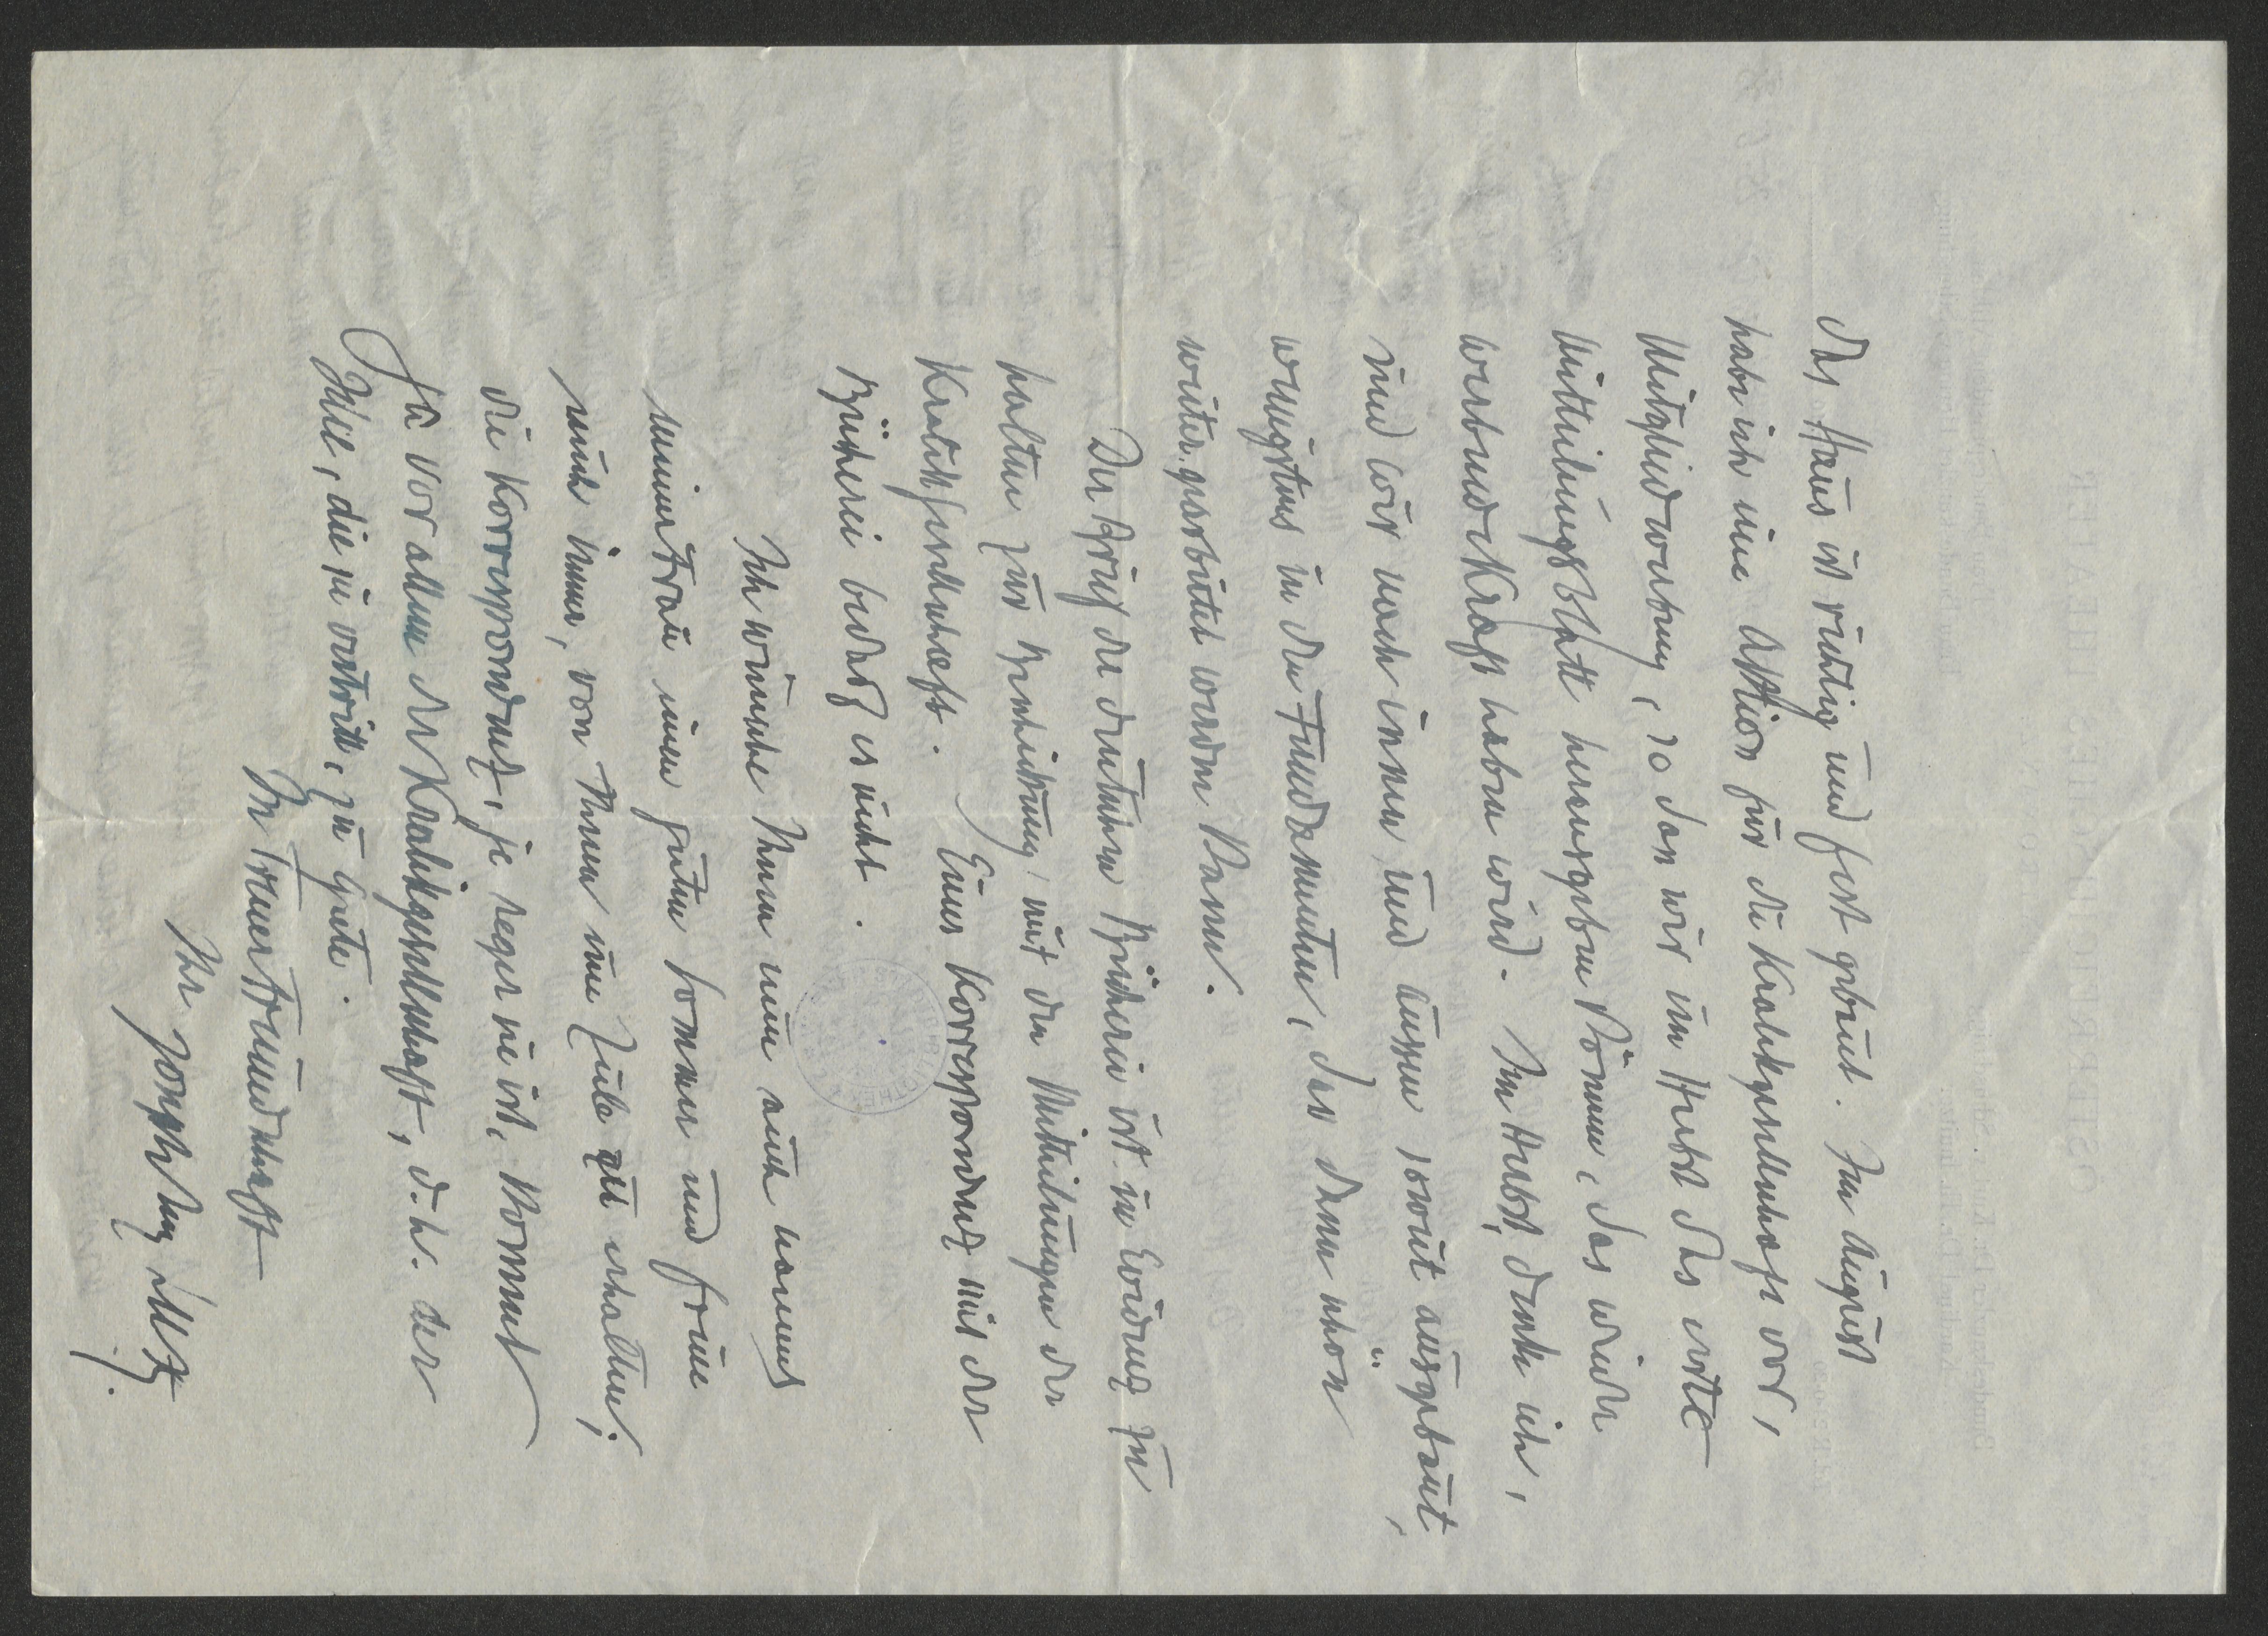 das Haus ist richtig und fest gebaut. Im August
habe ich eine Aktion für die Kralikgesellschaft vor,
Mitgliedwerbung, so dass wir im Herbst das erste
Mitteilungsblatt herausgeben können, das wieder
werbende Kraft haben wird. Im Herbst, denke ich,
sind wir nach innen und aussen soweit ausgebaut,
wenigstens in den Fundamenten, dass dann schon
weiter gearbeitet werden kann.
Der Gruß der deutschen Bücherei ist in Evidenz zu
halten zur Beschickung mit den Mitteilungen der
Kralikgesellschaft. Einer Korrespondenz mit der
Bücherei bedarf es nicht.
Ich wünsche Ihnen nun auch namens
meiner Frau einen guten Sommer und freue
mich immer, von Ihnen eine Zeile zu erhalten;
die Korrespondenz, je reger sie ist, kommt
ja vor allem der Kralikgesellschaft, d.h. der
Idee, die sie vertritt, zu Gute.
In treuer Freundschaft
Ihr